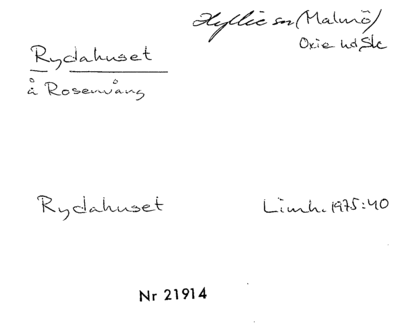 Hyllie sn (Malmö)
Oxie hd, Sk
Rydahuset
å Rosenvång
Rydahuset Limh. 1975:40
Nr 21914